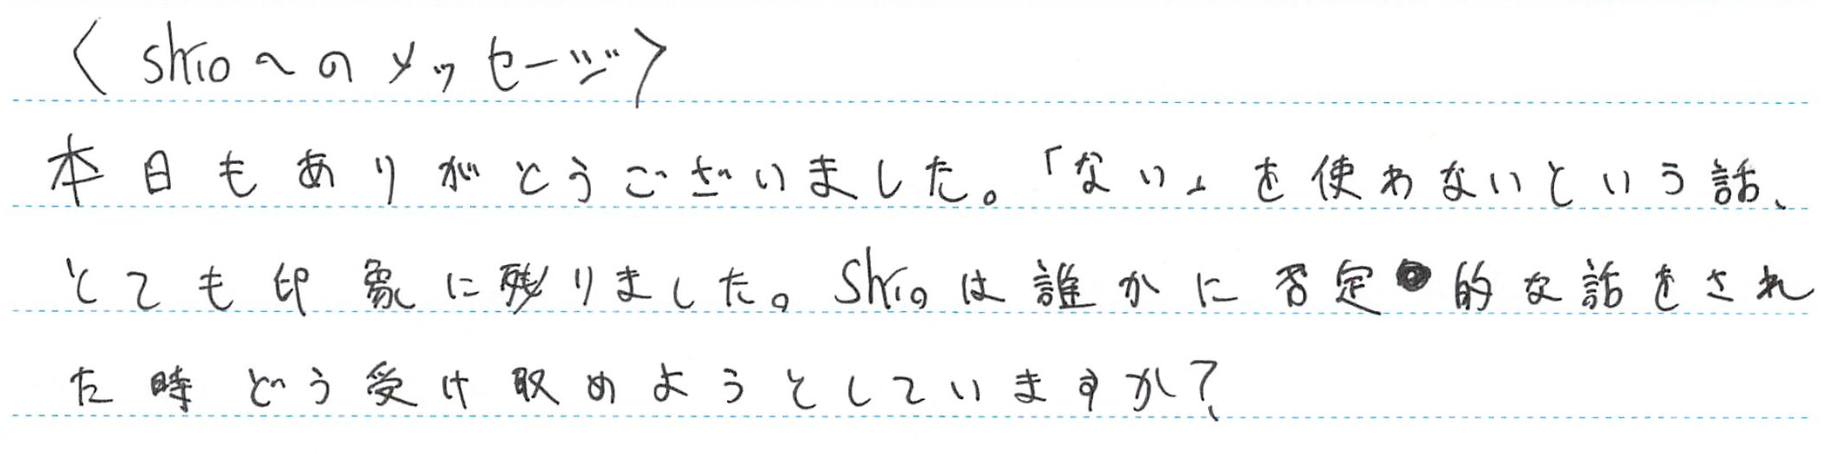 〈shioへのメッセージ〉
本日もありがとうございました。「ない」を使わないという話、
とても印象に残りました。Shioは誰かに否定的な話をされ
た時どう受け取めようとしていますか？